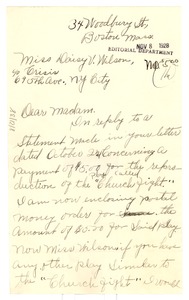 34 Woodbury St,
Boston Mass
NOV 8 1928
EDITORIAL DEPARTMENT
Miss Daisy V. Wilson,
℅ Crisis
69 5th Ave. NY City
Dear Madam.
In reply to a
Statement made in your letter
dated Concerning a
payment of 5.00 for the repro-
duction of the play called "Church Fight"
I am now enclosing postal
money order for
the Amount of $5.00 for said play
Now Miss Wilson if you have
any other play similar to
the "Church Fight" I would